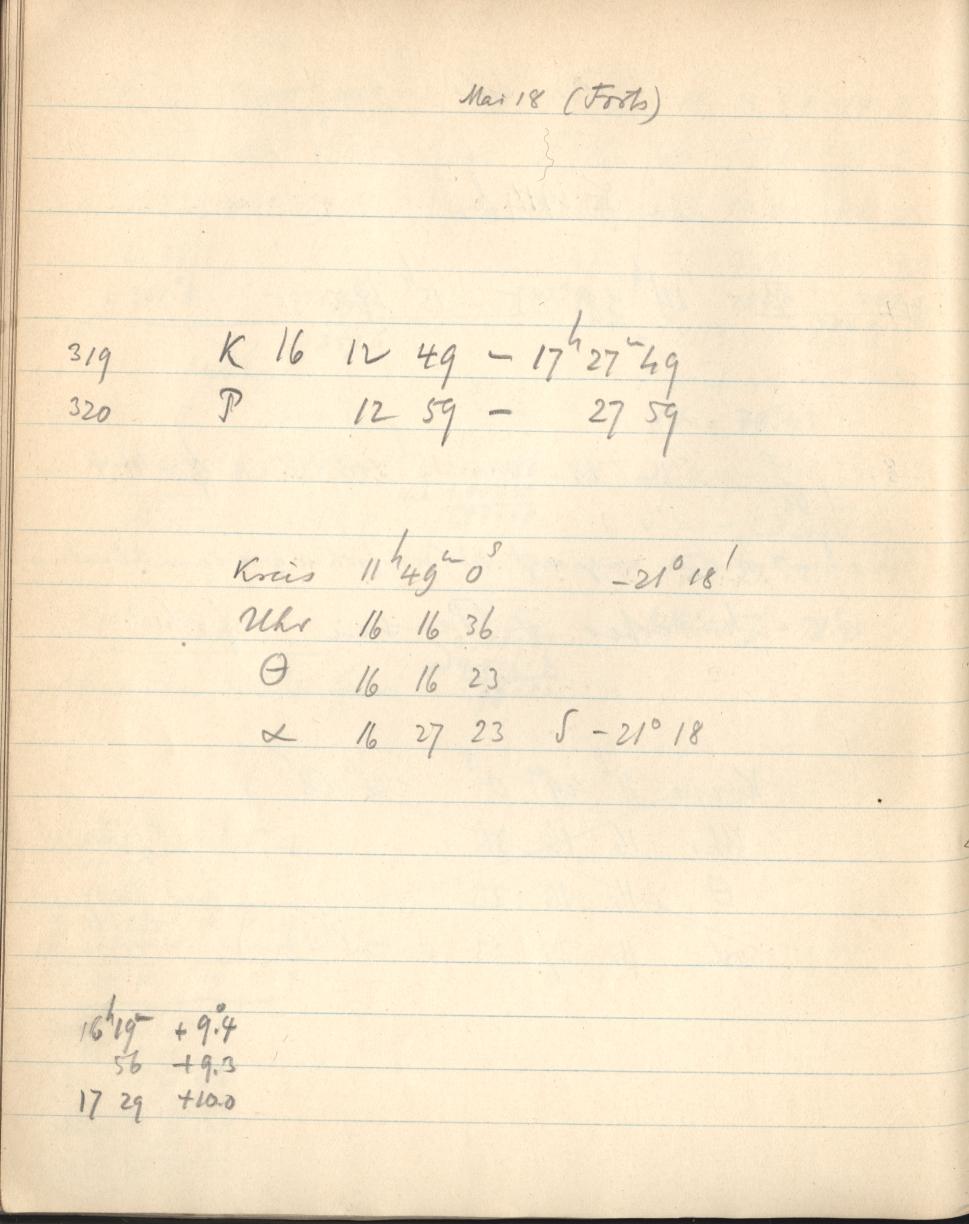 Mai 18 (Forts)
319 K 16 12 49 – 17ʰ 27ᵐ 49
320 P 12 59 – 27 59
Kreis 11ʰ 49ᵐ 0ˢ –21° 18'
Uhr 16 16 36
Θ 16 16 23
α 16 27 23 δ –21° 18
16ʰ 19ᵐ + 9°.4
56 +9.3
17 29 +10.0